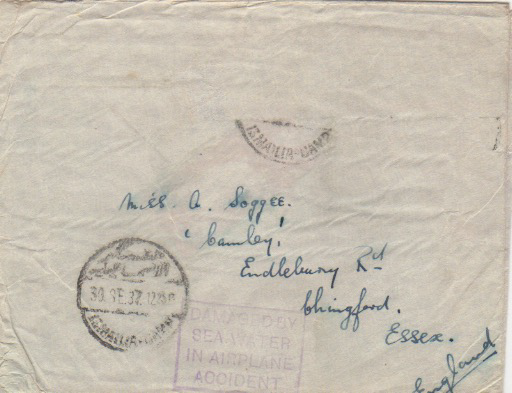 ISMAILIA-CAMP
Miss. A. Soggee.
'Camley,'
Endlebury Rd
Chingford.
Essex.
England
30. SE. 37. 12
ISMAILIA-CAMP
DAMAGED BY
SEA WATER
IN AIRPLANE
ACCIDENT